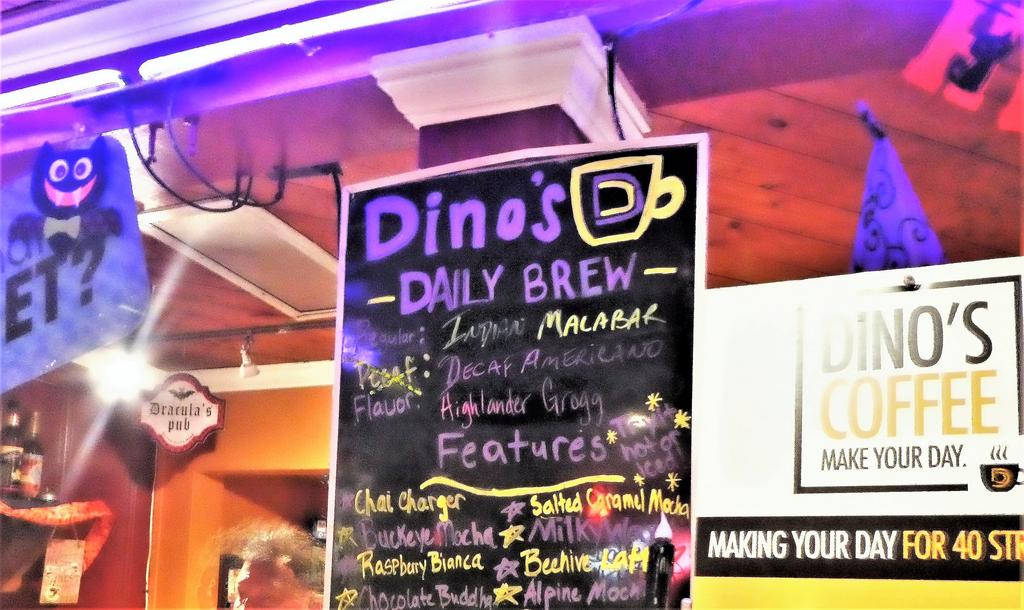 ET?
Dracula's
pub
Dino's D
- DAILY BREW -
Regular: INDIAN MALABAR
Decaf: DECAF AMERICANO
Flavor: Highlander Grogg
Features
Try it
hot or
iced!
Chai Charger
Salted Caramel Mocha
Buckeye Mocha
Milky
Raspbury Bianca
Beehive Latt
Chocolate Buddha
Alpine Moch
DINO'S
COFFEE
MAKE YOUR DAY.
D
MAKING YOUR DAY FOR 40 STR